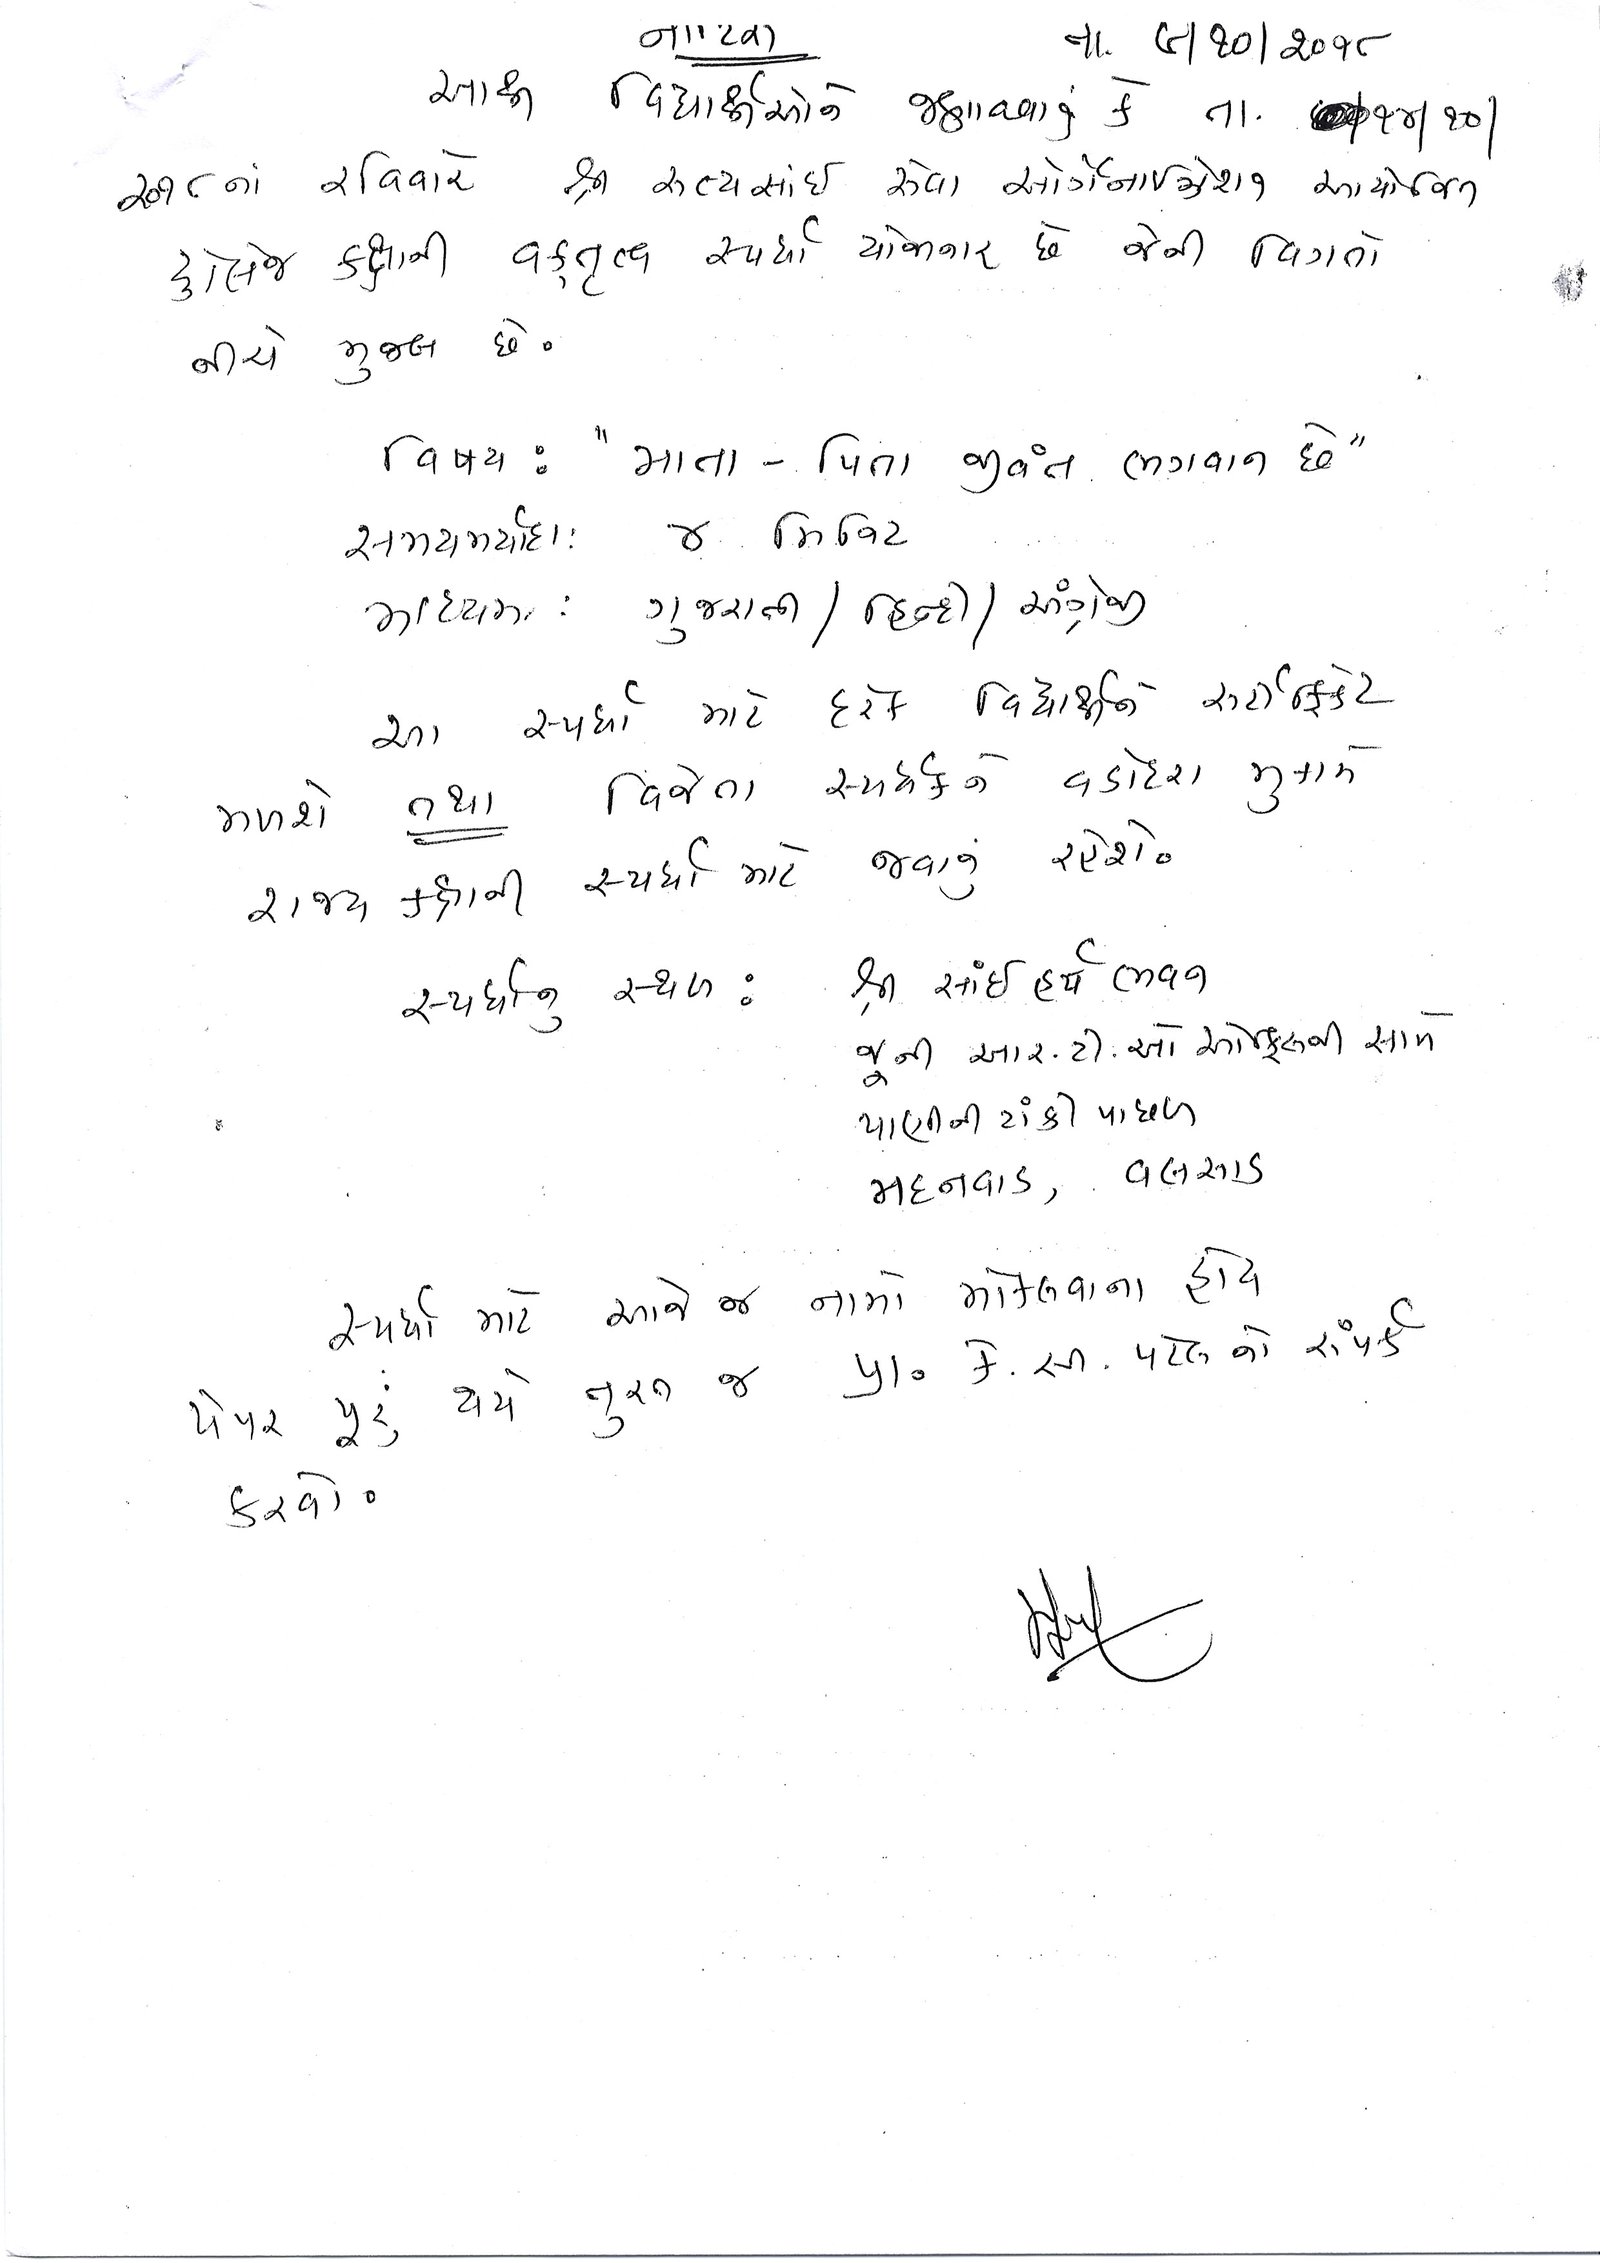 નોટિસ તા. ૯/૧૦/૨૦૧૮
આથી વિદ્યાર્થીઓને જણાવવાનું કે તા. ૧૪/૧૦/
૨૦૧૮નાં રવિવારે શ્રી સત્યસાંઈ સેવા ઓર્ગેનાઈઝેશન આયોજિત
કોલેજ કક્ષાની વકતૃત્વ સ્પર્ધા યોજાનાર છે જેની વિગતો
નીચે મુજબ છે.
વિષય : "માતા - પિતા જીવંત ભગવાન છે"
સમયમર્યાદા: ૪ મિનિટ
માધ્યમ : ગુજરાતી / હિન્દી / અંગ્રેજી
આ સ્પર્ધા માટે દરેક વિદ્યાર્થીને સર્ટીફિકેટ
મળશે તથા વિજેતા સ્પર્ધકને વડોદરા મુકામે
રાજ્ય કક્ષાની સ્પર્ધા માટે જવાનું રહેશે.
સ્પર્ધાનુ સ્થળ : શ્રી સાંઈ હર્ષ ભવન
જૂની આર.ટી.ઓ ઓફિસની સામે
પાણીની ટાંકી પાછળ
મદનવાડ, વલસાડ
સ્પર્ધા માટે આજે જ નામો મોકલવાના હોય
પેપર પૂરું થયે તુરત જ પ્રા. કે. સી. પટેલ નો સંપર્ક
કરવો.